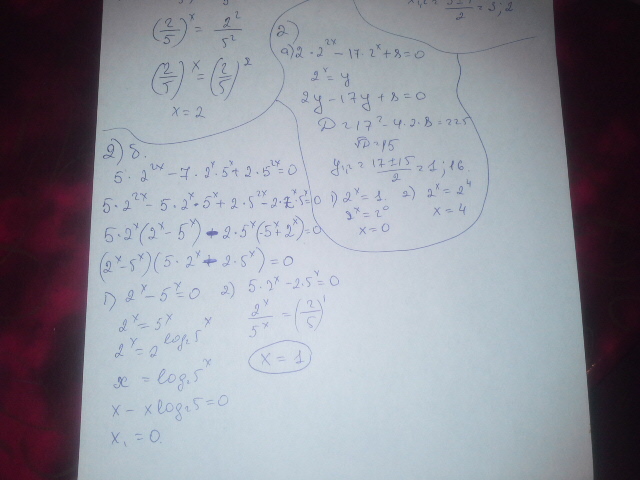 (2/5)^x = 2²/5²
(2/5)^x = (2/5)²
x = 2
2)
a) 2·2^2x − 17·2^x + 8 = 0
2^x = y
2y − 17y + 8 = 0
D = 17² − 4·2·8 = 225
√D = 15
y₁,₂ = (17±15)/2 = 1; 16.
1) 2^x = 1.
2^x = 2⁰
x = 0
2) 2^x = 2⁴
x = 4
2) б.
5·2^2x − 7·2^x·5^x + 2·5^2x = 0
5·2^2x − 5·2^x·5^x + 2·5^2x − 2·2^x·5^x = 0
5·2^x(2^x − 5^x) − 2·5^x(5^x + 2^x) = 0
(2^x − 5^x)(5·2^x − 2·5^x) = 0
1) 2^x − 5^x = 0
2^x = 5^x
2^x = 2^log₂5^x
x = log₂5^x
x − x log₂5 = 0
x₁ = 0.
2) 5·2^x − 2·5^x = 0
2^x/5^x = (2/5)^1
x = 1